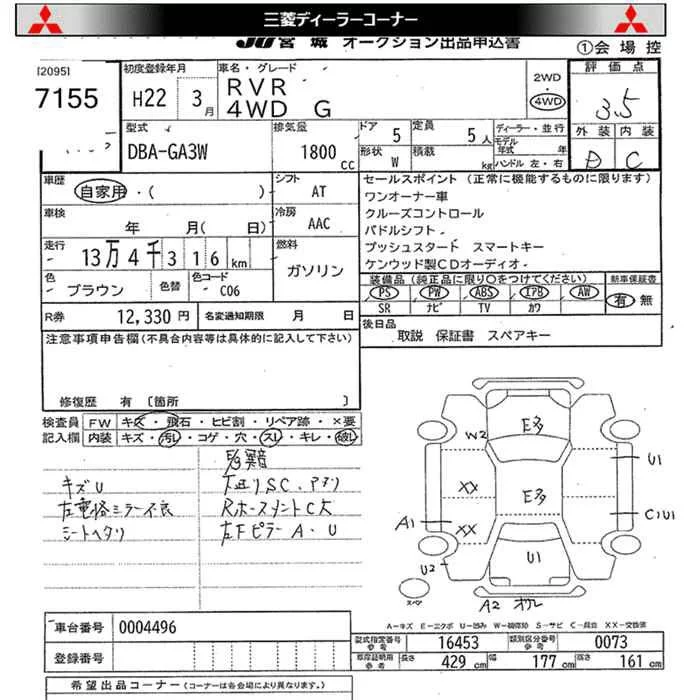 三菱ディーラーコーナー
JU宮城 オークション出品申込書
①会場控
120951
7155
初度登録年月
H22 3月
車名・グレード
RVR
4WD G
2WD
4WD
評価点
3.5
外装 内装
D C
型式
DBA-GA3W
排気量
1800 cc
ドア 5
定員 5人
形状 W
積載 kg
ディーラー・並行
モデル年式 年
ハンドル 左・右
車歴
自家用・( )
シフト
AT
車検
年 月(日)
冷房
AAC
走行
13万4千316km
燃料
ガソリン
色
ブラウン
色替
色コード
C06
R券 12,330円
名変通知期限 月 日
セールスポイント(正常に機能するものに限ります)
ワンオーナー車
クルーズコントロール
パドルシフト
プッシュスタート スマートキー
ケンウッド製CDオーディオ
装備品(純正品に限り○をつけてください)
PS PW ABS エアB AW
SR ナビ TV カワ
新車保証書
有・無
後日品
取説 保証書 スペアキー
注意事項申告欄(不具合内容等は具体的に記入して下さい)
修復歴 有〔箇所 〕
検査員記入欄
FW キズ・飛石・ヒビ割・リペア跡・×要
内装 キズ・汚レ・コゲ・穴・スレ・キレ・破レ
キズU
左電格ミラー不良
シートヘタリ
下廻りSC.アタリ
左FピラーA.U
W2
E多
U1
XX
E多
A1
XX
C1U1
U2
U1
スペア
A2
A-キズ E-エクボ U-凹み W-補修跡 S-サビ C-腐食 XX-交換済
車台番号 0004496
登録番号
型式指定番号 参考 16453
類別区分番号 参考 0073
車庫証明用 参考 長さ 429cm 幅 177cm 高さ 161cm
希望出品コーナー(コーナーは各会場により異なります。)